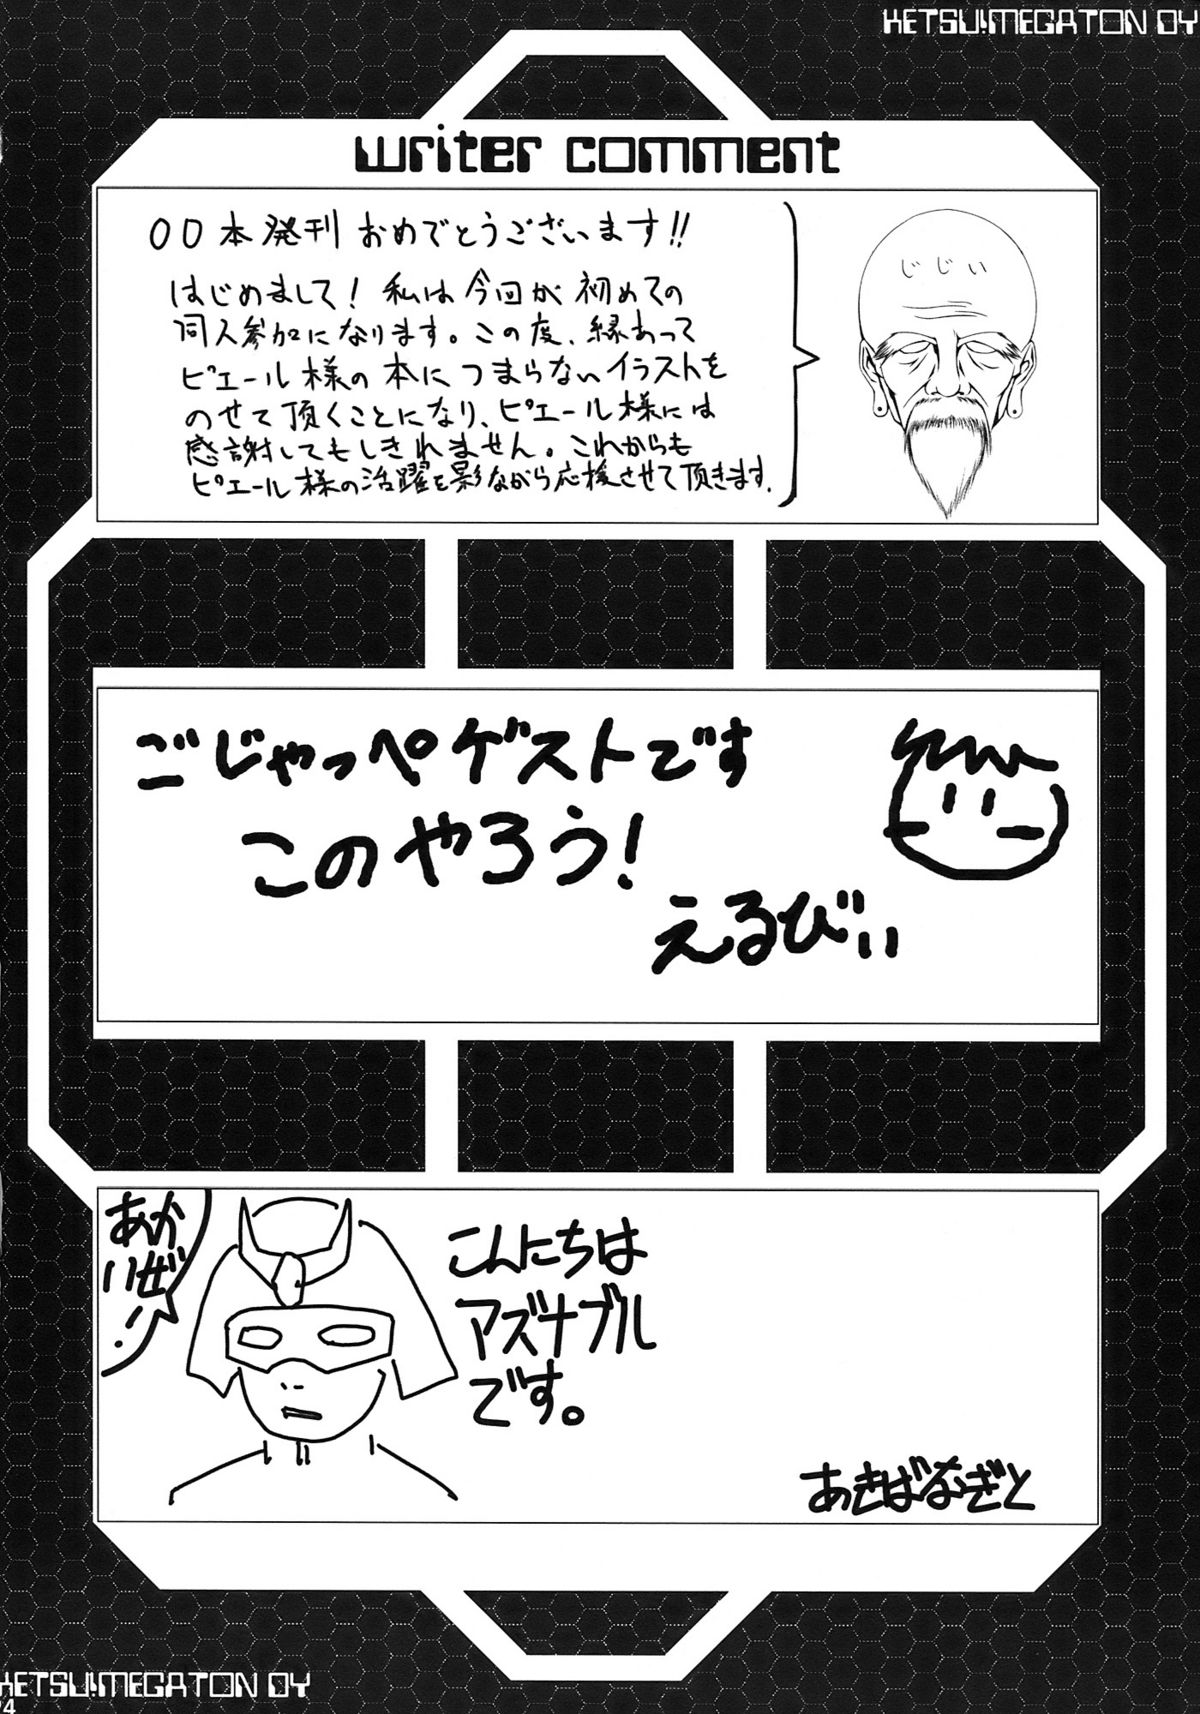 KETSU!MEGATON 04
writer comment
00本発刊 おめでとうございます!!
はじめまして! 私は今回が初めての
同人参加になります。この度、縁あって
ピエール様の本につまらないイラストを
のせて頂くことになり、ピエール様には
感謝してもしきれません。これからも
ピエール様の活躍を影ながら応援させて頂きます.
じじい
ごじゃっぺゲストです
このやろう!
えるびぃ
あか
いぜ
!!
こんにちは
アズナブル
です。
あきばなぎと
KETSU!MEGATON 04